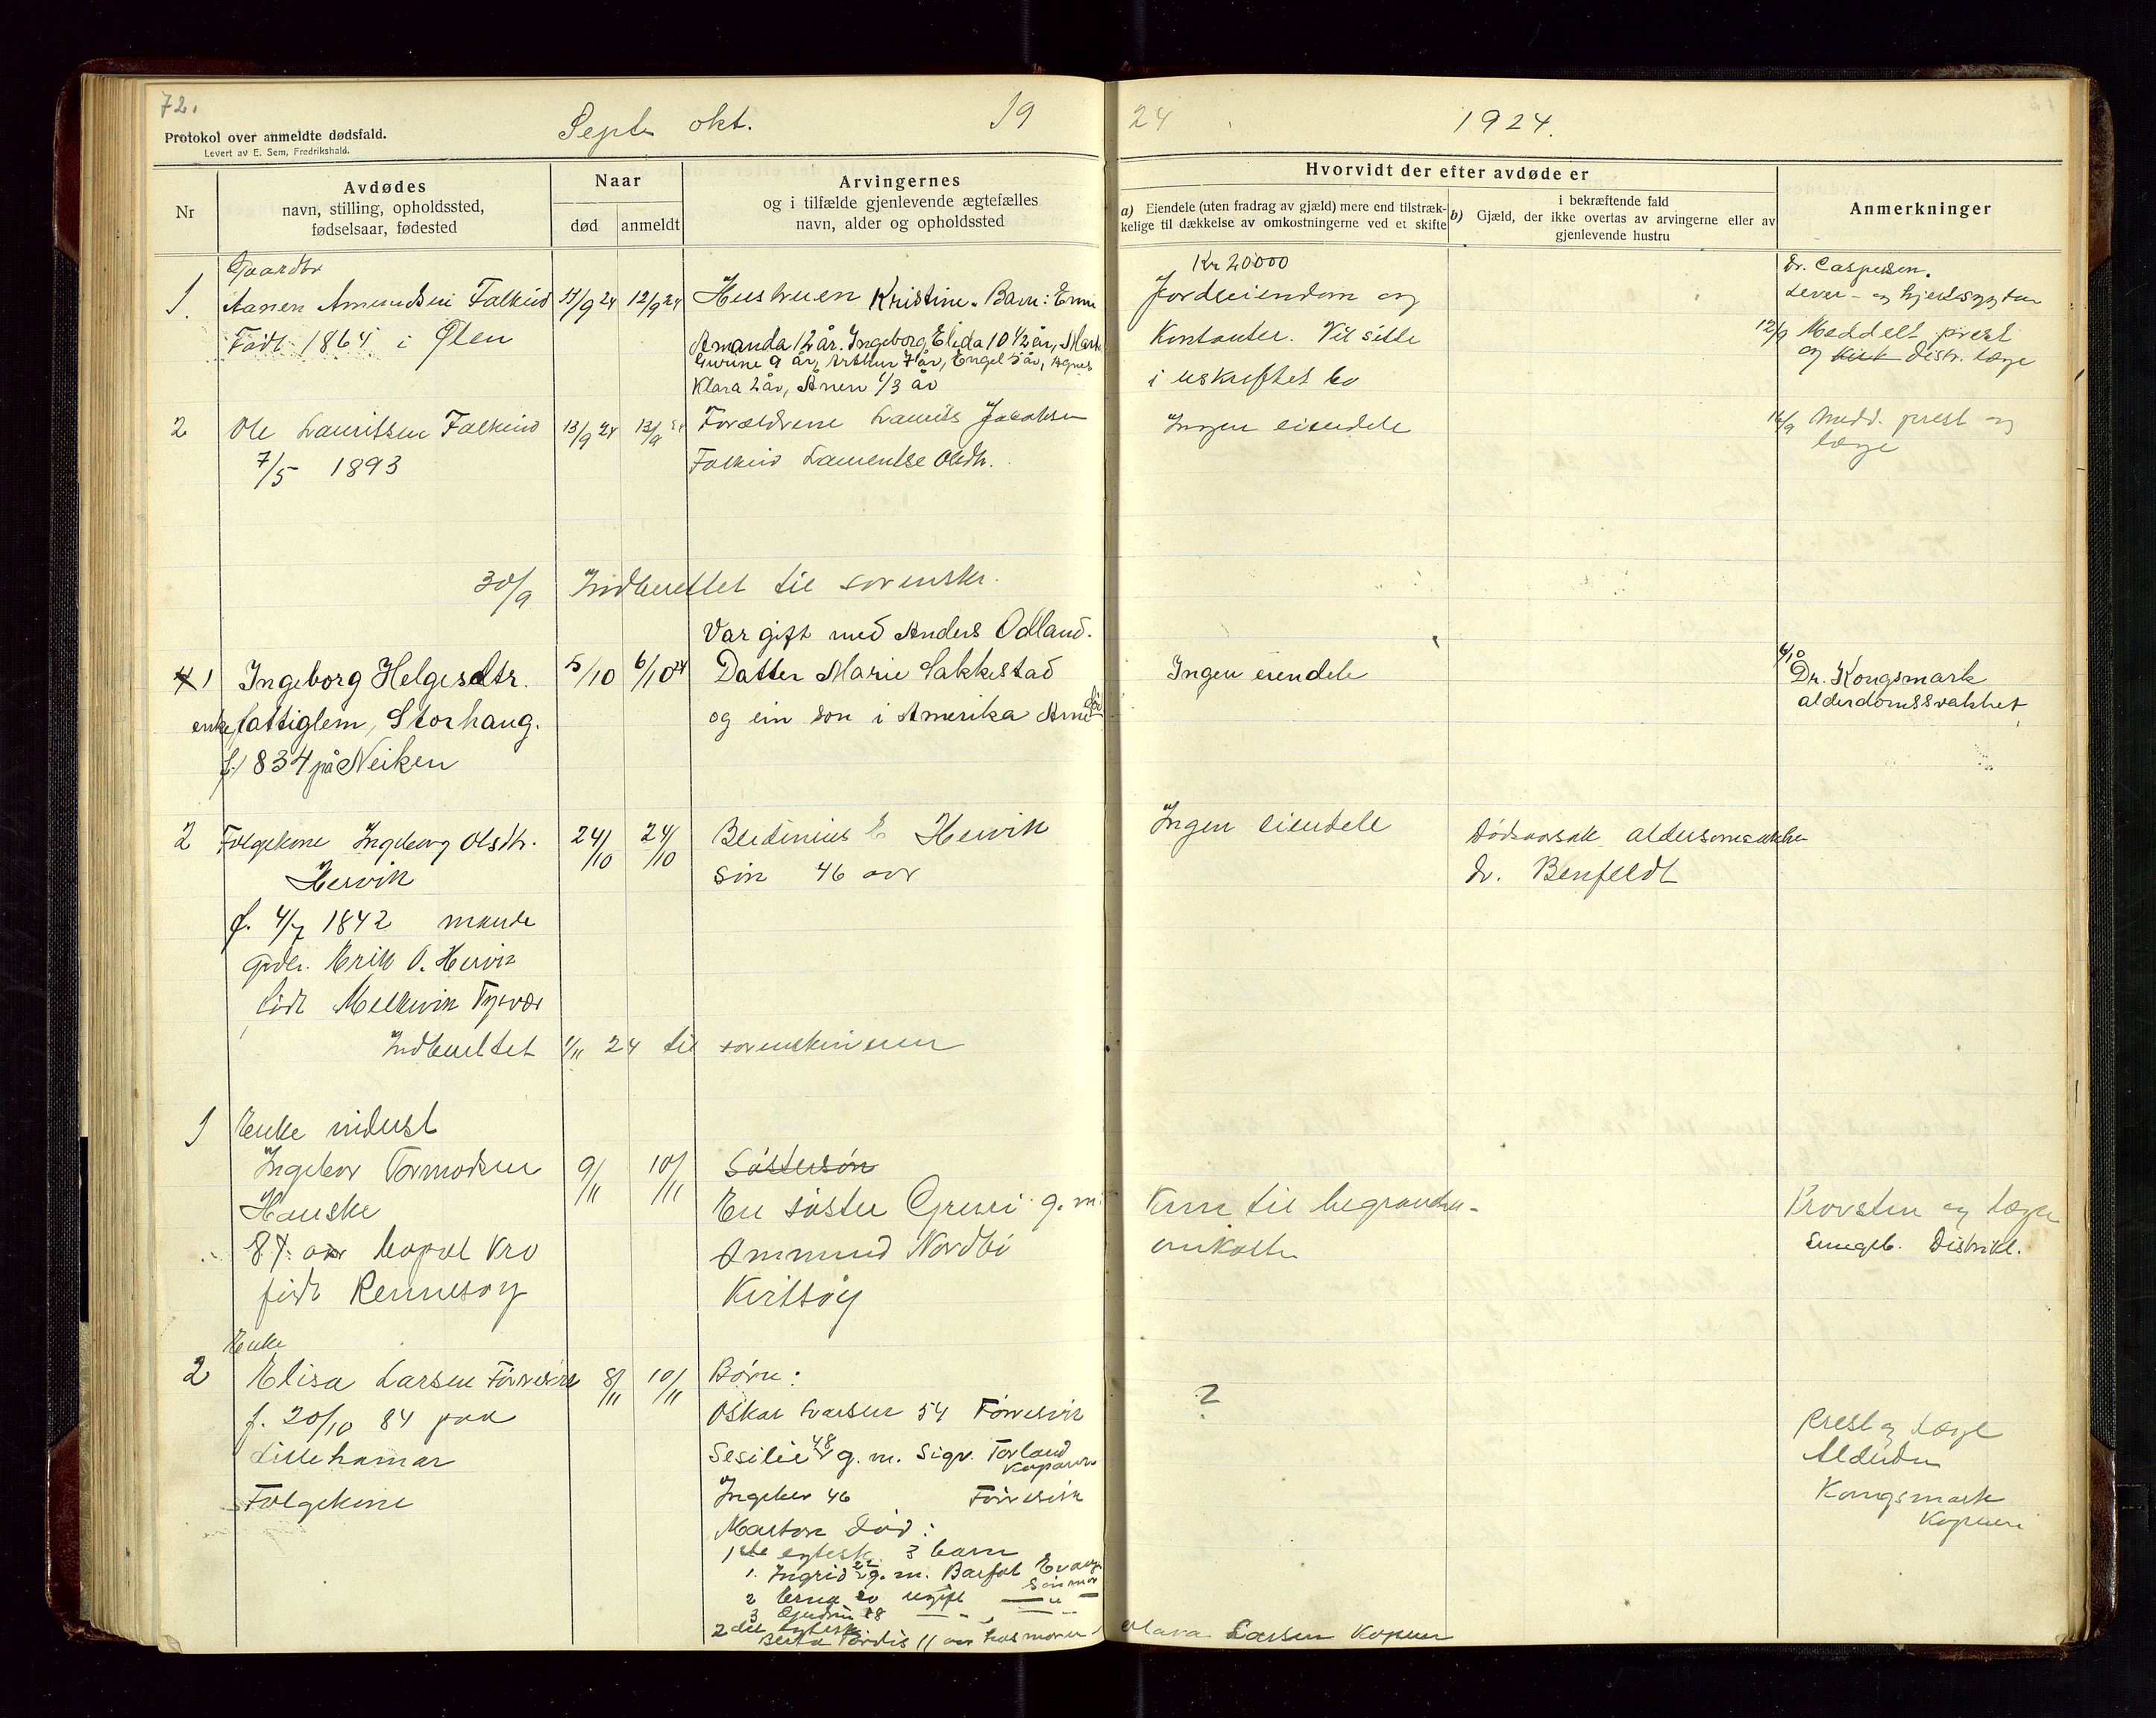 72.
Protokol over anmeldte dødsfald.
Levert av E. Sem, Fredrikshald.
Sept. okt.
19
24
1924.
Nr
Avdødes
navn, stilling, opholdssted,
fødselsaar, fødested
Naar
død
anmeldt
Arvingernes
og i tilfælde gjenlevende ægtefælles
navn, alder og opholdssted
Hvorvidt der efter avdøde er
a) Eiendele (uten fradrag av gjæld) mere end tilstræk-
kelige til dækkelse av omkostningerne ved et skifte
i bekræftende fald
b) Gjæld, der ikke overtas av arvingerne eller av
gjenlevende hustru
Anmerkninger
1.
Gaardbr
Aanen Amundsen Falkeid
Født 1864 i Ølen
11/9 24
12/9 24
Hustruen Kristine. Barn:
Amanda 12 år. Ingeborg Elida 10 1/2 år,
Gurine 9 år, Arthur 7 år, Engel 5 år, Agnes
Klara 2 år, Anen 1/3 år
Kr 20000
Jordeiendom og
Kontanter. Vil sitte
i uskiftet bo
Dr. Caspersen.
Lever- og hjertesygdom
12/9 Meddelt prest
og distr. læge
2
Ole Lauritsen Falkeid
7/5 1893
13/9 24
13/9 24
Forældrene Laurits Jakobsen
Falkeid Laurentse Olsdtr.
Ingen eiendele
16/9 Medd. prest og
læge
30/9 Indberettet til sorenskr.
1
Ingeborg Helgesdtr.
enke fattiglem, Storhaug.
f. 1834 på Neiken
5/10
6/10 24
Var gift med Anders Odland.
Datter Marie Sakkestad
og ein son i Amerika
Ingen eiendele
6/10
Dr. Kongsmark
alderdomssvakhet
2
Folgekone Ingeborg Olsdtr.
Hervik
f. 4/7 1842 mands
grdbr. Erik O. Hervik
født Melkevik Tysvær
24/10
24/10
Berdinius E Hervik
søn 46 aar
Ingen eiendele
Dødsaarsak alderdomssvakhet
dr. Benfeldt
Indberettet 1/11 24 til sorenskriveren
1
Enke inderst
Ingebor Tormodsen
Hauske
87 aar bopæl Kro
født Rennesøy
9/11
10/11
Søstersøn
En søster Guri g. m.
Ammund Nordbø
Kvitsøy
Kun til begravelses-
omkostn
Provsten og læge
Distrikt.
2
Enke
Elisa Larsen Førresvik
f. 20/10 84 paa
Lillehamar
Folgekone
8/11
10/11
Børn:
Oskar Larsen 54 Førresvik
Sesilie 48 g. m. Sigv. Torland
Kopervik
Ingebor 46 Førresvik
Marton død:
1ste egtesk. 3 barn
1. Ingrid 22 g. m.
2 Erna 20 ugift
3 Gudrun 18
2det egtesk
Berta Tordis 11 aar hos moren
Larsen Koperv
?
Prest og Læge
Alderdom
Kongsmark
Kopervik